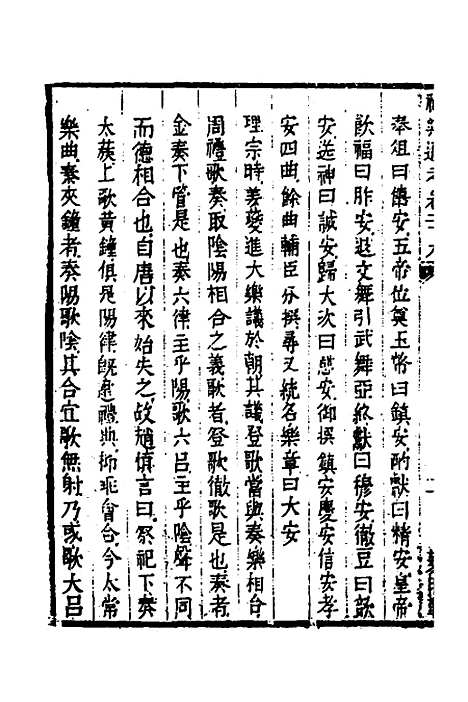 奉俎曰禧安五帝位奠玉幣曰鎮安酌獻曰精安皇帝
飲福曰胙安退文舞引武舞亞終獻曰穆安徹豆曰歆
安送神曰誠安歸大次曰憩安御撰鎮安慶安信安孝
安四曲餘曲輔臣分撰尋又統名樂章曰大安
理宗時姜夔進大樂議於朝其議登歌當與奏樂相合
周禮歌奏取陰陽相合之義歌者登歌徹歌是也奏者
金奏下管是也奏六律主乎陽歌六呂主乎陰聲不同
而德相合也自唐以來始失之故趙慎言曰祭祀下奏
太蔟上歌黃鐘俱是陽律旣違禮典抑乖會合今太常
樂曲奏夾鐘者奏陽歌陰其合宜歌無射乃或歌大呂